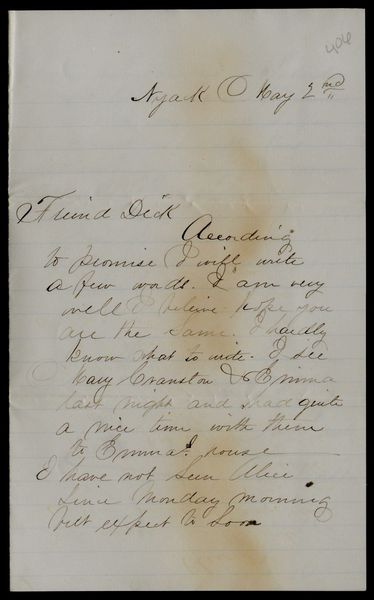 406
Nyack May 2nd
Friend Dick
According
to promise I will write
a few words. I am very
well I beleive hope you
are the same. I hardly
know what to write. I see
Mary Cranston & Emma
last night and had quite
a nice time with them
to Emmas house
I have not seen Alice
since Monday morning
but expect to soon